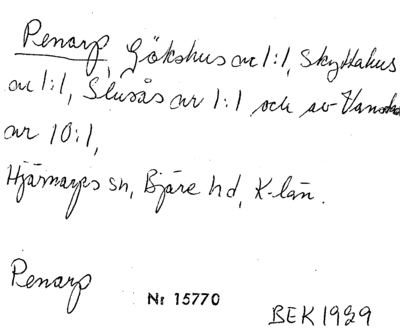 Penarp, Gökshus nr 1:1, Skyttahus
nr 1:1, Slusås nr 1:1 och av
nr 10:1,
Hjärnarps sn, Bjäre hd, K-län.
Penarp
Nr 15770
BEK 1929